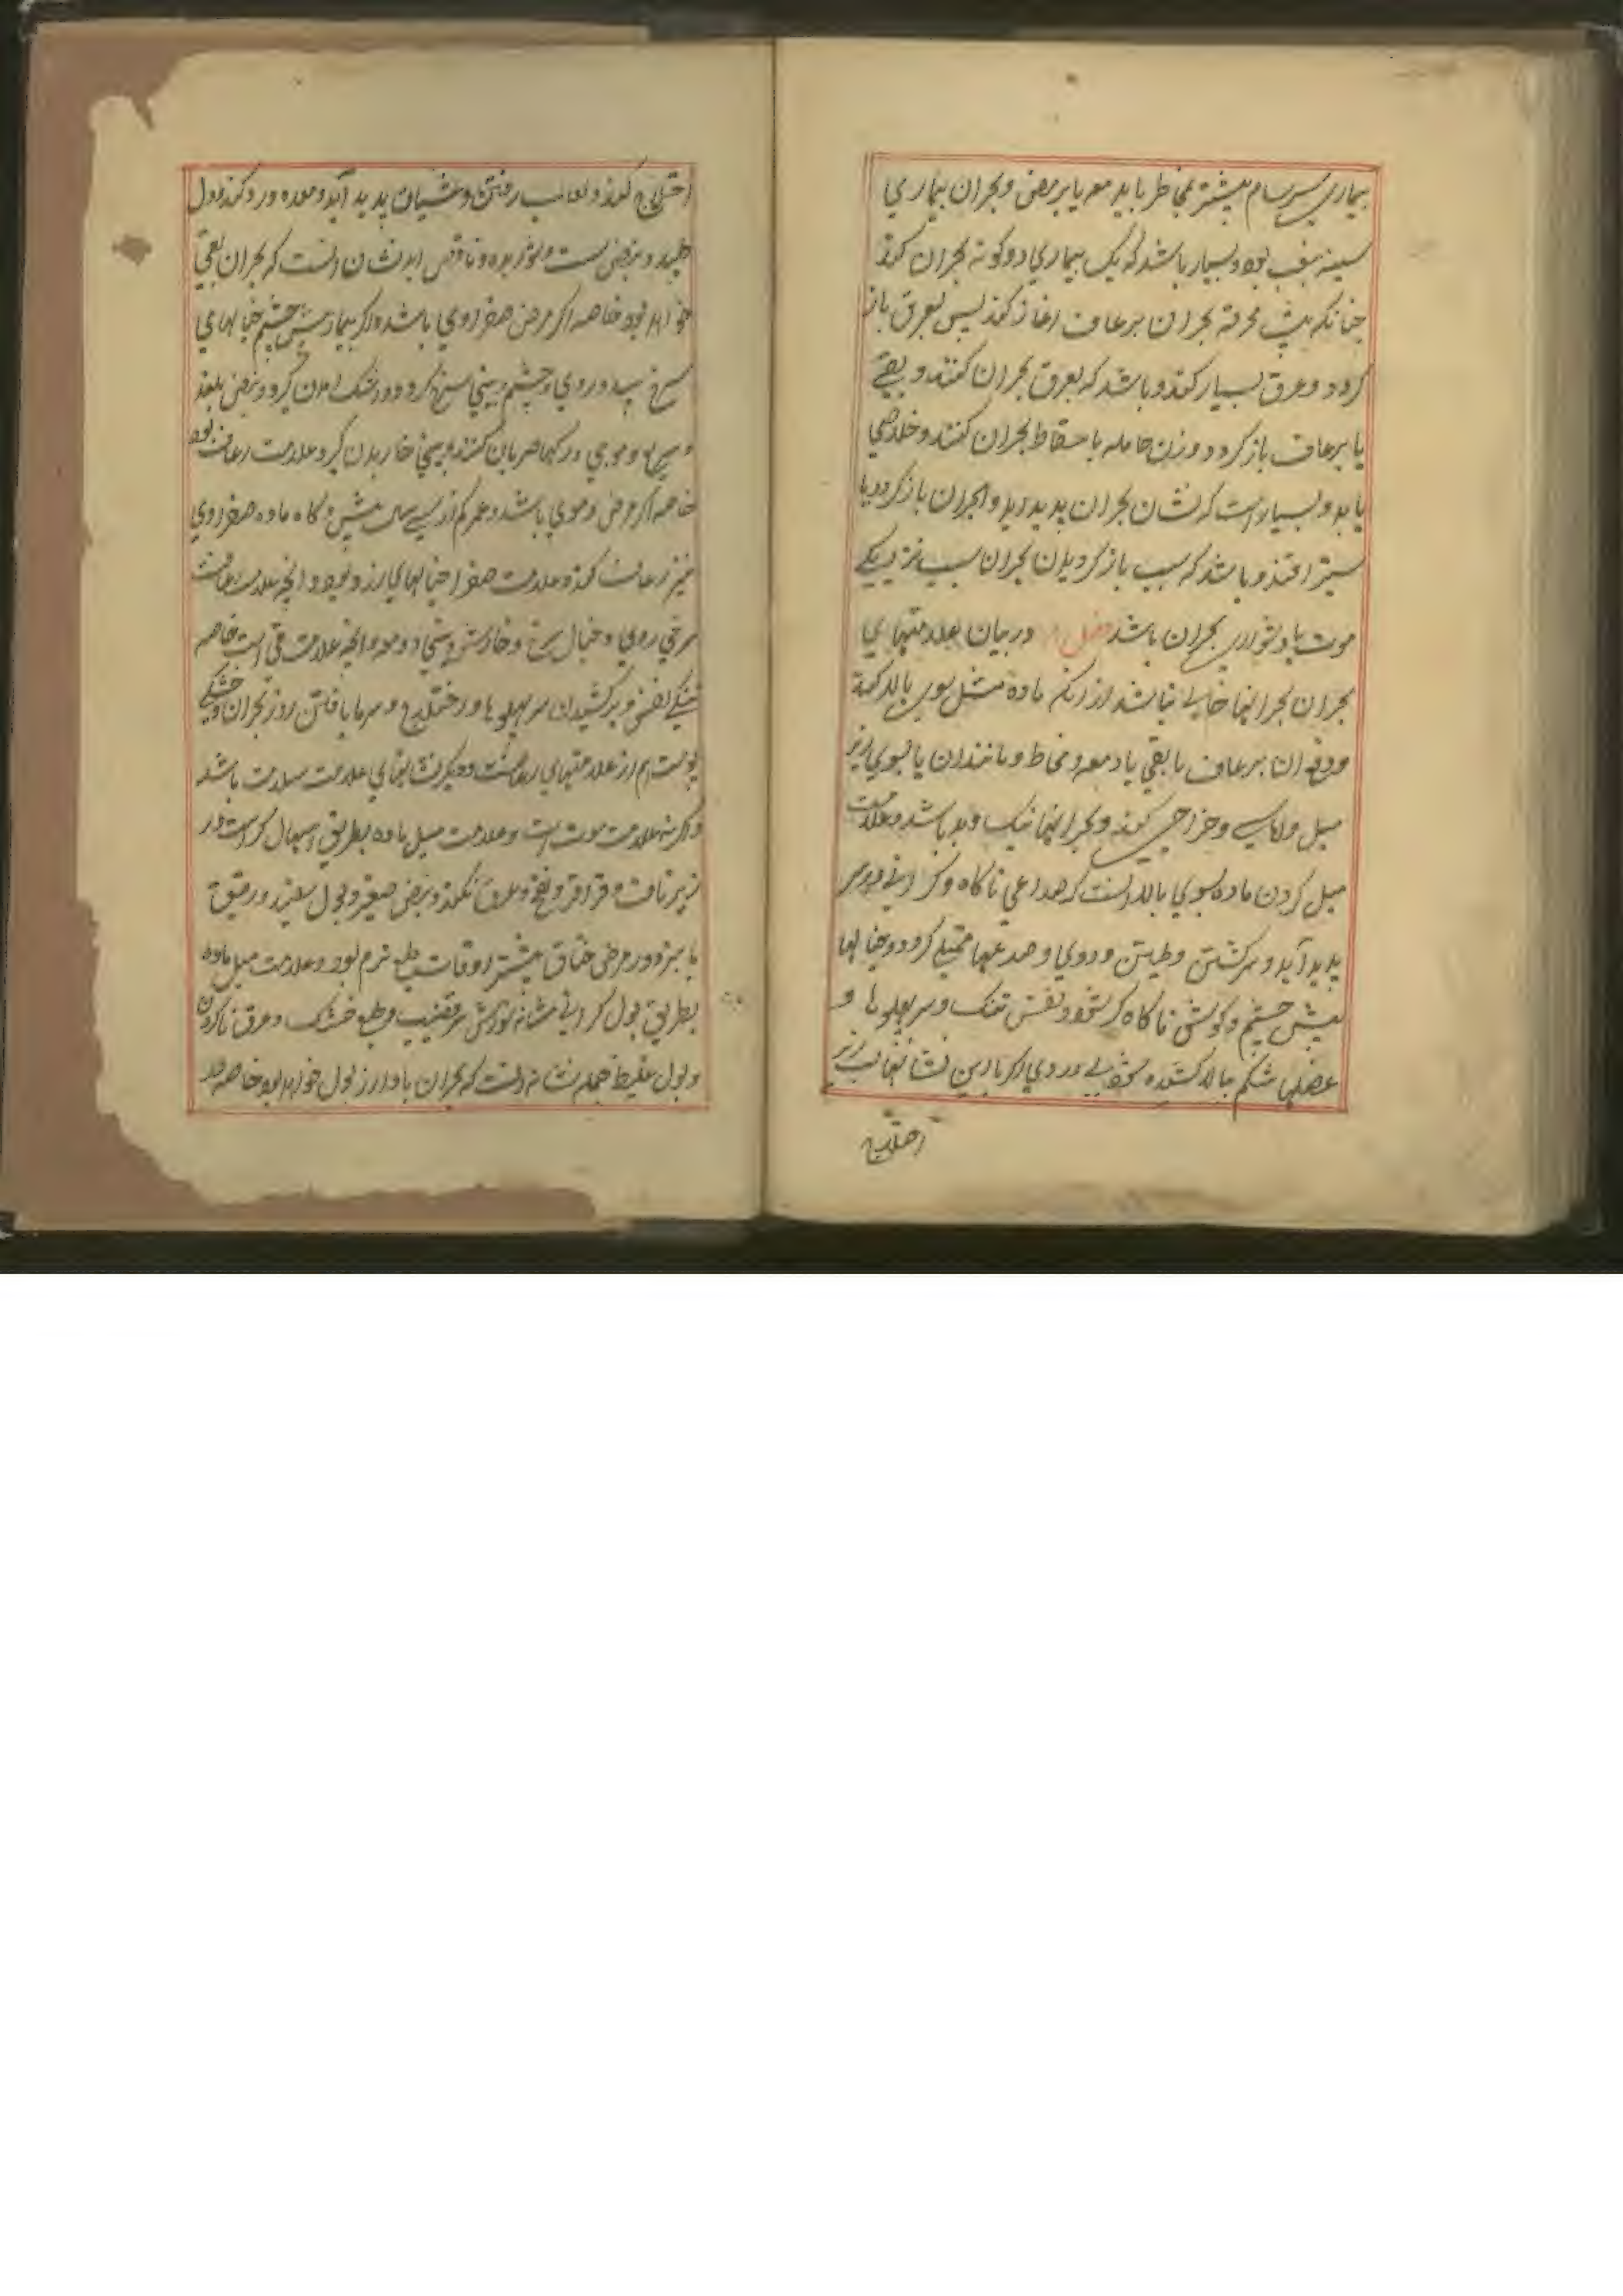 بیماری سرسام بیشتر بمخاط یا بدمعه یا برمص و بحران بیماری
سینه بنفث بود و بسیار باشد که یک بیماری دوکونه بحران کند
چنانکه تپ محرقه بحران برعاف اغاز کند پس بعرق باز
کردد و عرق بسیار کند و باشد که بعرق بحران کنند و بقی
یا برعاف باز کردد و زن حامله باسقاط بحران کنند و خلاصی
یابد و بسیار است که نشان بحران پدید اید و بحران باز کردد یا
افتد و باشد که سبب باز کردیدن بحران سبب نزدیکی
موت یا دشواری بحران باشد فصل در بیان علامتهای
بحران بحرانها خالی نباشد از انکه ماده میل بسوی بالا کند
و دفع آن برعاف یا بقی یا دمعه و مخاط و مانند آن یا بسوی زیر
میل و خراجی کند و بحرانها نیک و بد باشد و علامت
میل کردن ماده بسوی بالا آنست که صداعی ناکاه و کرانی در سر
پدید آید و سر کشتن و طپش و روی و صدغها ممتلی کردد و خیالها
پیش چشم و کوش ناکاه کر شود و نفس تنک و سر پهلوها و
عضلها شکم بالا کشیده و روی اکر با این نشانها لب زیر
اختلاج
اختلاج کند و لعاب رفتن و غشیان پدید آید و معده درد کند و دل
طپد و نبض پست و ناقص این نشان آنست که بحران بقی
خواهد بود خاصه اکر مرض صفراوی باشد و اکر بیمار پیش چشم خیالهای
سرخ بیند و روی و چشم و بینی سرخ کردد و اشک امدن کیرد و نبض بلند
و سریع و موجی و رکها ضربان کنند و بینی خاریدن کیرد علامت رعاف بود
خاصه اکر مرض دموی باشد و عمر کم از سی سال و کاه ماده صفراوی
نیز رعاف کند و علامت صفرا خیالهای زرد بود و آنچه علامت رعافست
سرخی روی و خیال سرخ و خارش بینی و آنچه علامت قی است خاصه
تنکی نفس و برکشیدن سر پهلوها و اختلاج و سرما یافتن روز بحران و خشکی
پوست هم از علامتهای علامت سلامت باشد
و اکر نه علامت موت است و علامت میل ماده بطریق اسهال کرانیست در
زیر ناف و قراقر و نفخ و عرق نکند و نبض صغیر و بول سفید و رقیق
یا سبز و در مرض خناق بیشتر اوقات طبع نرم بود و علامت میل ماده
بطریق بول کرانی مثانه سوزش سر قضیب و طبع خشک و عرق ناکردن
و بول غلیظ جمله نشان آنست که بحران بادرار بول خواهد بود خاصه